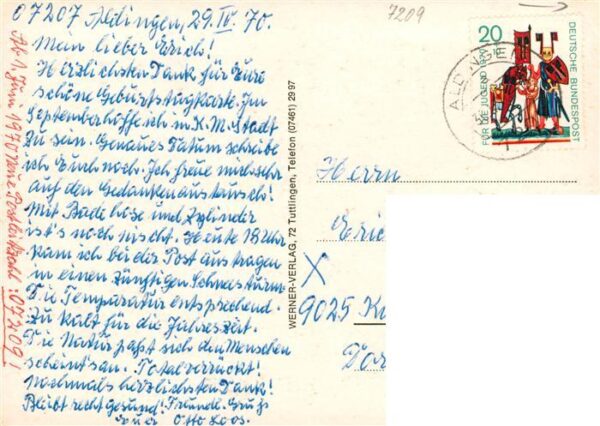 07207 Aldingen, 29. IV. 70.
Mein lieber Erich!
Herzlichsten Dank für Eure
schöne Geburtstagkarte. Im
September hoffe ich in K. M. Stadt
zu sein. Genaues Datum schreibe
ich Euch noch. Ich freue mich sehr
auf den Gedankenaustausch!
Mit Badehose und Zylinder
ist's noch nischt. Heute 18 Uhr
kam ich bei der Post austragen
in einen zünftigen Schneesturm.
Die Temperatur entsprechend.
Zu kalt für die Jahreszeit.
Die Natur paßt sich den Menschen
scheint's an. Total verrückt!
Nochmals herzlichsten Dank!
Bleibt recht gesund! Freundl. Gruß
Euer Otto Loos.
Ab 1. Juni 1970 neue Postleitzahl: 07209!
WERNER-VERLAG, 72 Tuttlingen, Telefon (07461) 2997
7209
20
FÜR DIE JUGEND 1970
DEUTSCHE BUNDESPOST
Herrn
Eric
X
9025 K